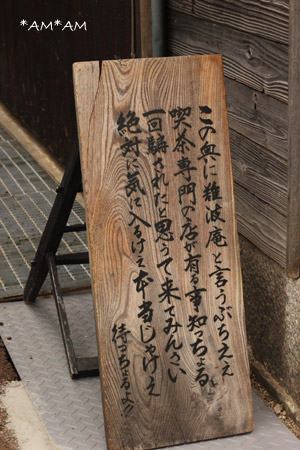 *AM*AM
この奥に難波庵と言うぶちええ
喫茶専門の店が有る事知っちょる
一回騙されたと思うて来てみんさい
絶対に気に入るけえ本当じゃけえ
待っちょるよ!!